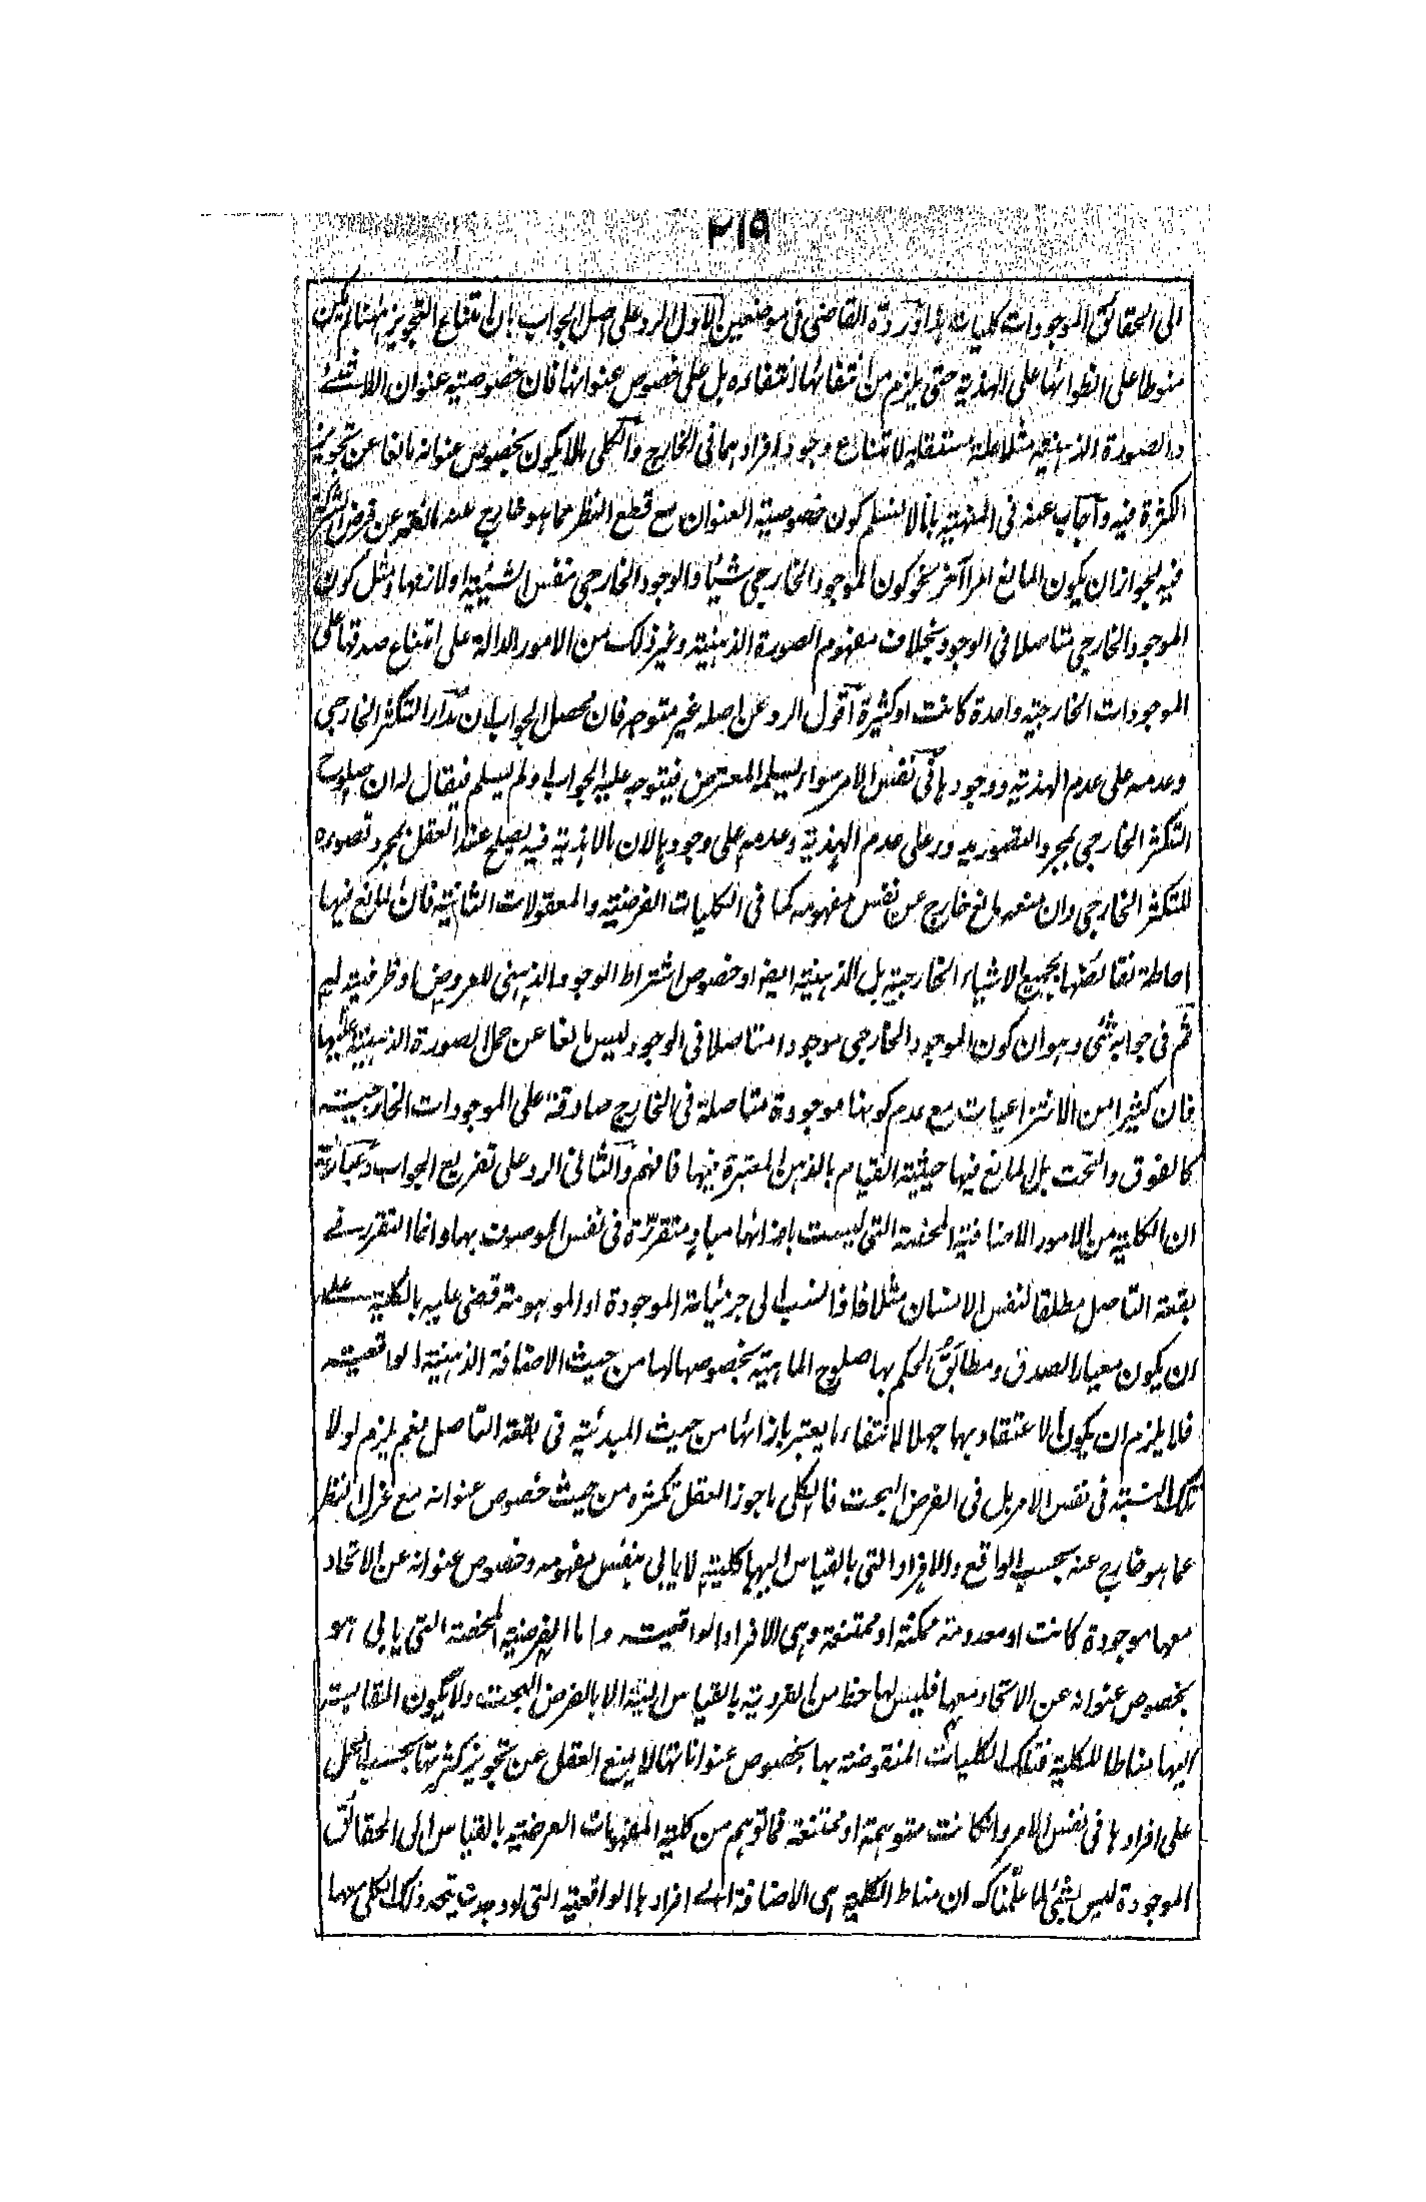 ٢١٩
الى الحقائق الموجودات كليات وردّه القاضى فى موضعين الاول الرد على اصل الجواب بان امتناع التجويز لم يكن
منوطا على انطوائها على الهذية حتى يلزم من انتفائها انتفاءه بل على خصوص عنوانها فان خصوصية عنوان اللاشئ
والصورة الذهنية مثلا علة مستقلة لامتناع وجود افرادهما فى الخارج والكلى ما لا يكون بخصوص عنوانه مانعا عن تجويز
الكثرة فيه وآجاب عنه فى المنهية بانا لا نسلم كون خصوصية العنوان مع قطع النظر عما هو خارج عنه مانعة عن فرض الشركة
فيه لجواز ان يكون المانع امرا آخر نحو كون الموجود الخارجى شيئا والوجود الخارجى نفس الشيئية او لازمها ومثل كون
الموجود الخارجى متاصلا فى الوجود بخلاف مفهوم الصورة الذهنية وغير ذلك من الامور الدالة على امتناع صدقها على
الموجودات الخارجية واحدة كانت او كثيرة آقول الرد عن اصله غير متوجه فان محصل الجواب ان مدار التكثر الخارجى
وعدمه على عدم الهذية ووجودها فى نفس الامر سواء يسلمه المعترض فيتوجه عليه الجواب او لم يسلم فيقال له ان صلوح
التكثر الخارجى بمجرد التصور يدور على عدم الهذية وعدمه على وجودها لان ما لا هذية فيه يصلح عند العقل بمجرد تصوره
للتكثر الخارجى وان منعه مانع خارج عن نفس مفهومه كما فى الكليات الفرضية والمعقولات الثانية فان المانع فيها
احاطة نقائضها بجميع الاشياء الخارجية بل الذهنية ايضا او خصوص اشتراط الوجود الذهنى للعروض او ظرفيته له
ثم فى جوابه شئ وهو ان كون الموجود الخارجى موجودا متاصلا فى الوجود ليس مانعا عن حمل الصورة الذهنية عليها
فان كثيرا من الانتزاعيات مع عدم كونها موجودة متاصلة فى الخارج صادقة على الموجودات الخارجية
كالفوق والتحت بل المانع فيها حيثية القيام بالذهن المعتبرة فيها فافهم والثانى الرد على تفريع الجواب وعبارته
ان الكلية من الامور الاضافية المحضة التى ليست بازائها مبادٍ متقررة فى نفس الموصوف بها وانما التقرر فى
بقعة التاصل مطلقا لنفس الانسان مثلا فاذا نسب الى جزئياته الموجودة او الموهومة قضى عليه بالكلية على
ان يكون معيار الصدق ومطابَق الحكم بها صلوح الماهية بخصوصها لها من حيث الاضافة الذهنية الواقعية
فلا يلزم ان يكون الاعتقاد بها جهلا لانتفاء ما يعتبر بازائها من حيث المبدئية فى بقعة التاصل نعم يلزم لو لا
تلك النسبة فى نفس الامر بل فى الفرض البحت فالكلى ما جوز العقل تكثره من حيث خصوص عنوانه مع عزل النظر
عما هو خارج عنه بحسب الواقع والافراد التى بالقياس اليها كليته لا يابى بنفس مفهومه وخصوص عنوانه عن الاتحاد
معها موجودة كانت او معدومة ممكنة او ممتنعة وهى الافراد الواقعية واما الفرضية المحضة التى يابى هو
بخصوص عنوانه عن الاتحاد معها فليس لها حظ من الفردية بالقياس اليه الا بالفرض البحت ولا يكون المقايسة
اليها مناطا للكلية فتلك الكليات المنقوضة بها بخصوص عنواناتها لا يمنع العقل عن تجويز كثرتها بحسب الحمل
على افرادها فى نفس الامر وان كانت متوهمة او ممتنعة فما توهم من كلية المفهومات العرضية بالقياس الى الحقائق
الموجودة ليس بشئ لما علّمناك ان مناط الكلية هى الاضافة الى افرادها الواقعية التى لو وجدت يتحد ذلك الكلى معها